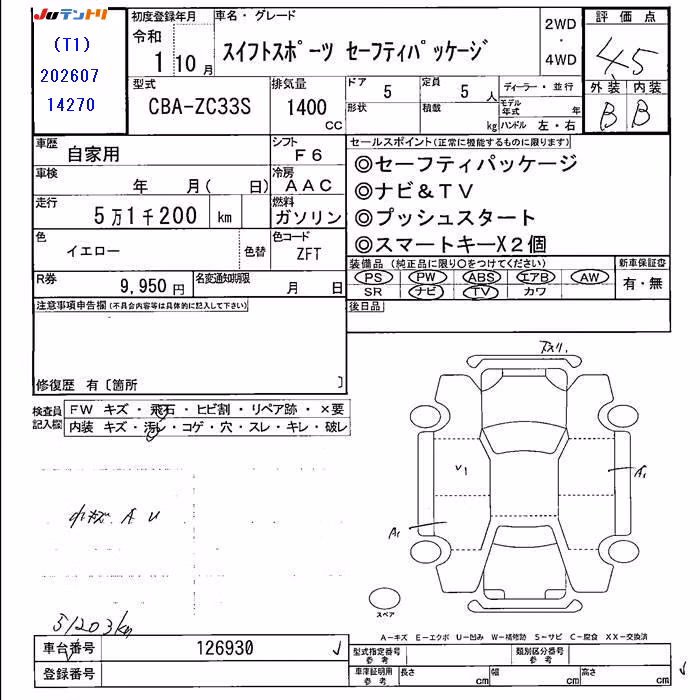 JUテントリ
(T1)
202607
14270
初度登録年月
令和
1 10 月
車名・グレード
スイフトスポーツ セーフティパッケージ
2WD
・
4WD
評価点
4.5
外装 内装
B B
型式
CBA-ZC33S
排気量
1400
CC
ドア
5
定員
5 人
形状
積載
kg
ディーラー・並行
モデル年式 年
ハンドル 左・右
車歴
自家用
シフト
F6
車検
年 月( 日)
冷房
AAC
走行
5万1千200 km
燃料
ガソリン
色
イエロー
色替
色コード
ZFT
R券
9,950 円
名変通知期限
月 日
セールスポイント(正常に機能するものに限ります)
◎セーフティパッケージ
◎ナビ&TV
◎プッシュスタート
◎スマートキーX2個
装備品(純正品に限り○をつけてください)
PS PW ABS エアB AW
SR ナビ TV カワ
新車保証書
有・無
後日品
注意事項申告欄(不具合内容等は具体的に記入して下さい)
修復歴 有〔箇所 〕
検査員記入欄
FW キズ・飛石・ヒビ割・リペア跡・×要
内装 キズ・汚レ・コゲ・穴・スレ・キレ・破レ
小キズ A U
51203km
下スリ.
V1
A1
A1
スペア
A-キズ E-エクボ U-凹み W-補修跡 S-サビ C-腐食 XX-交換済
車台番号
126930
登録番号
型式指定番号
参考
類別区分番号
参考
車庫証明用
参考
長さ cm
幅 cm
高さ cm